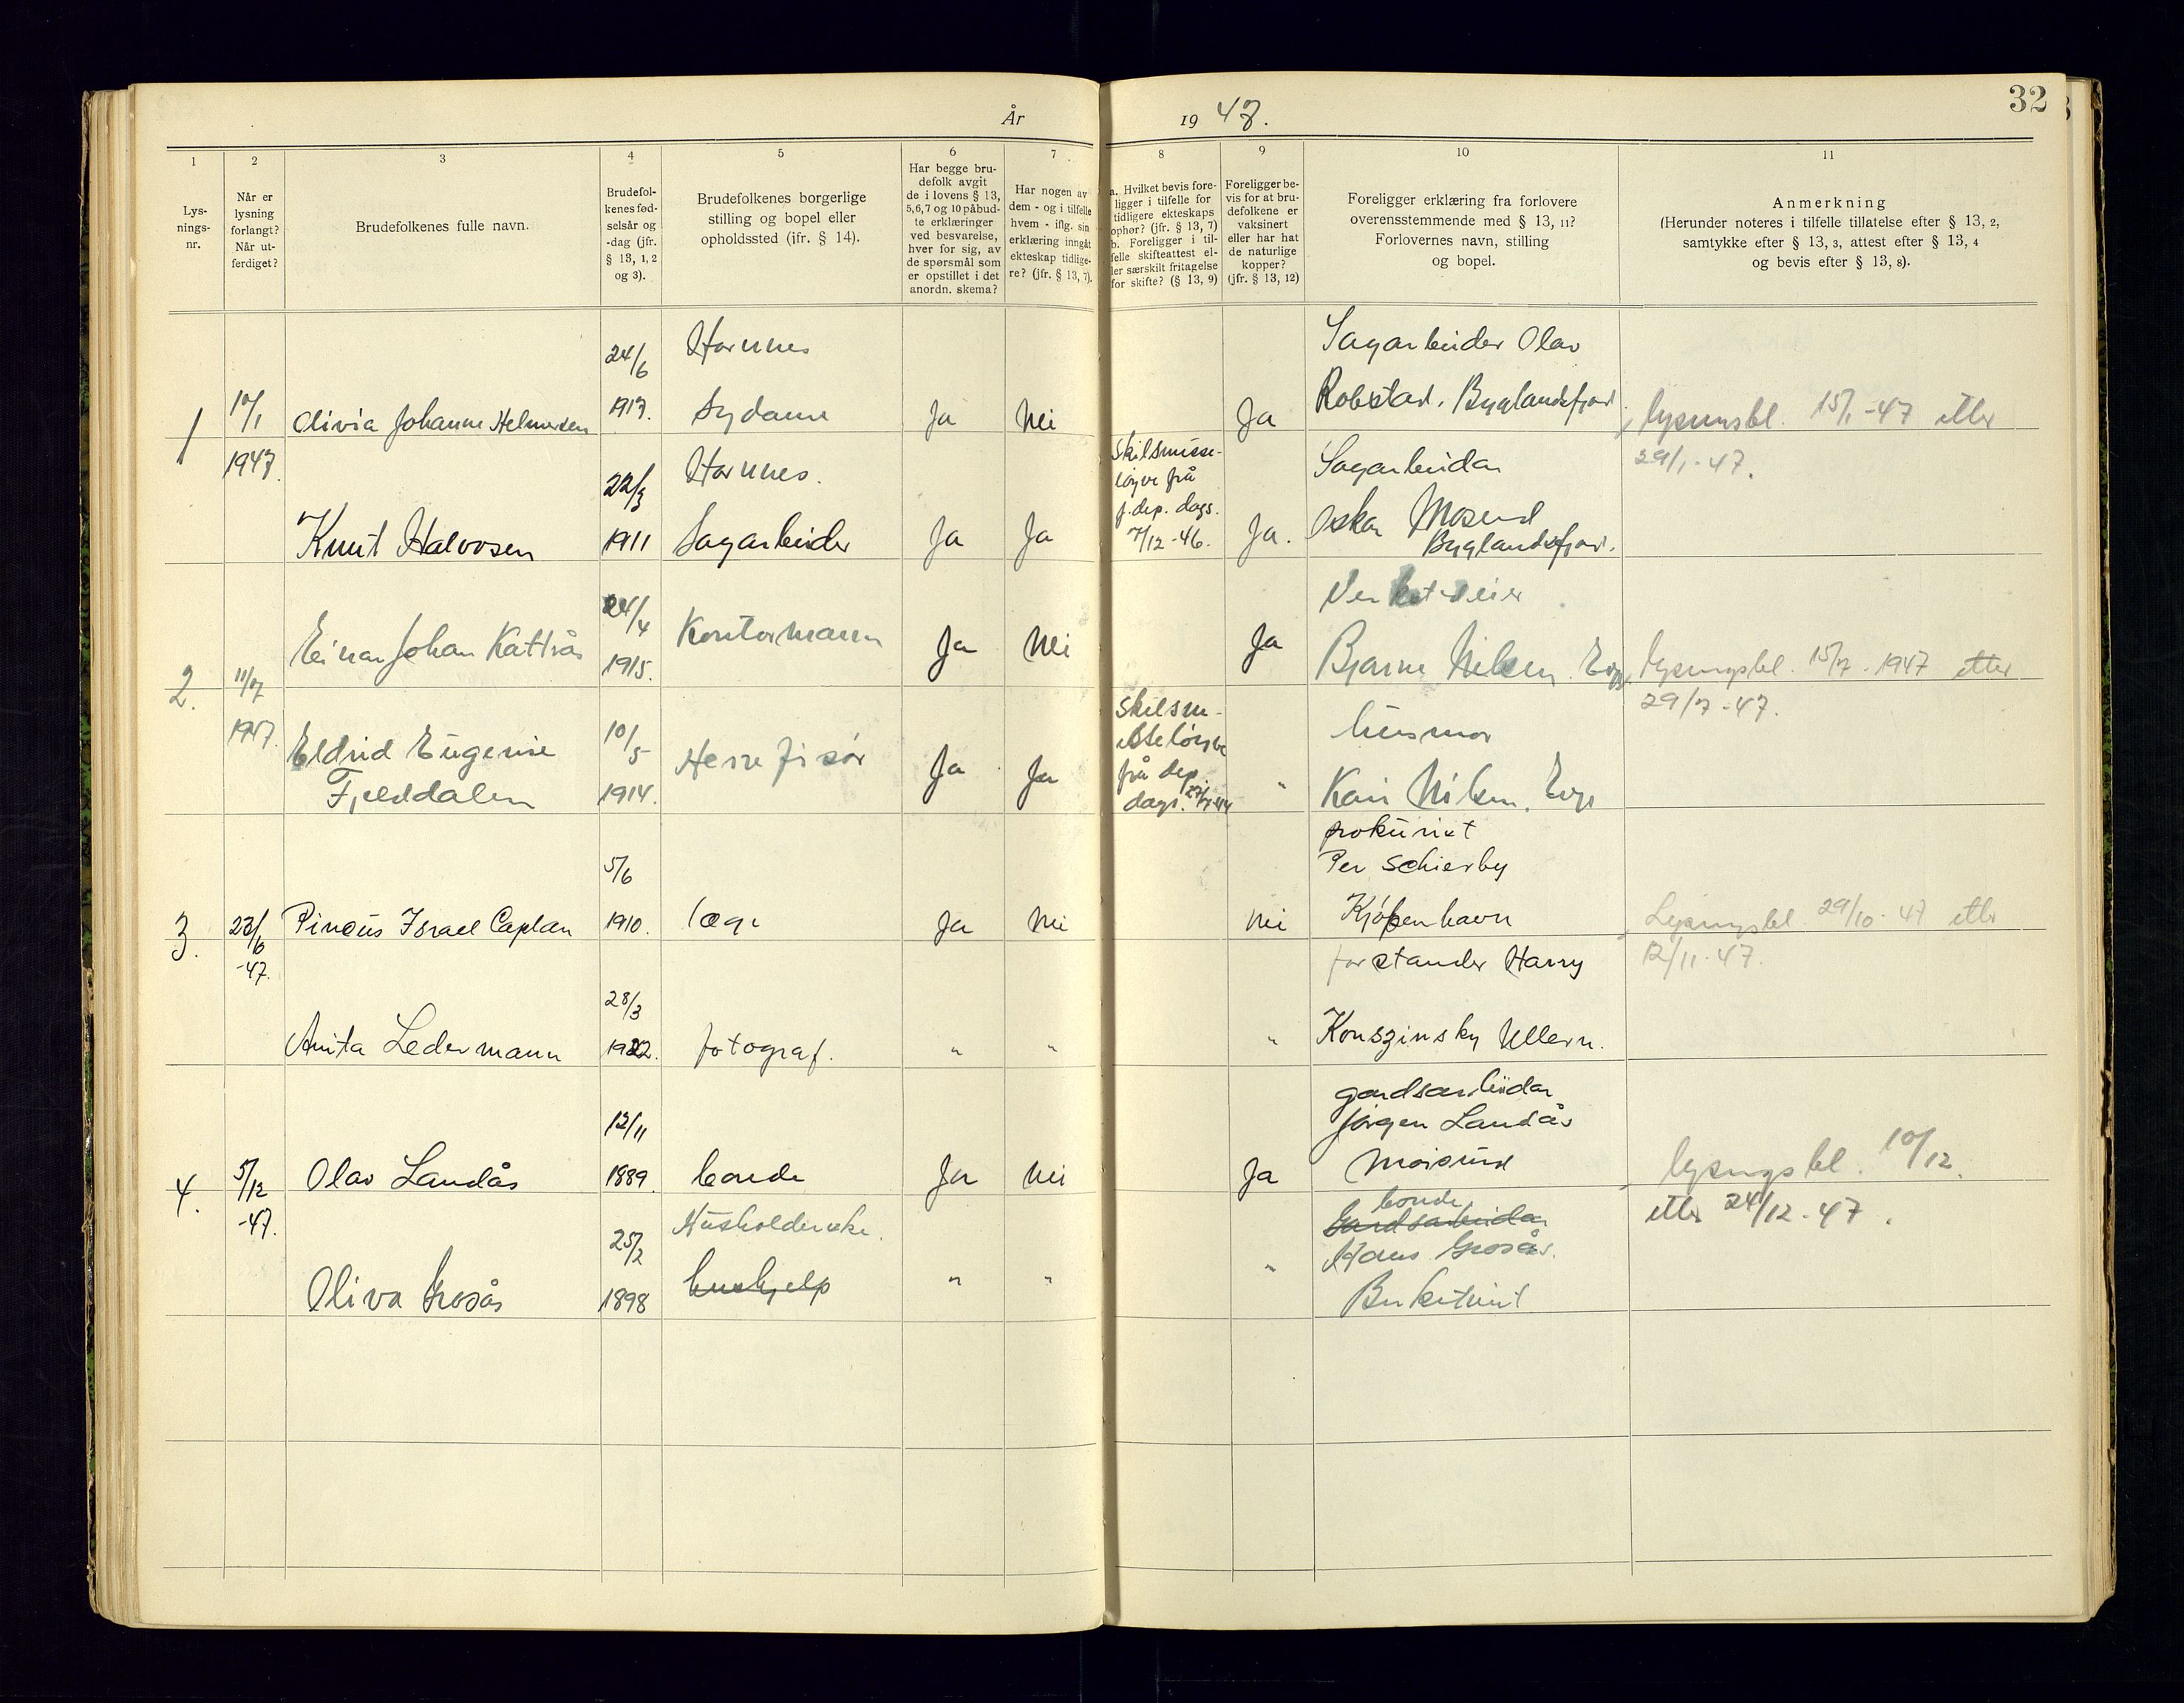 År 1947.
32
1 2 3 4 5 6 7 8 9 10 11
Lys-
nings-
nr.
Når er
lysning
forlangt?
Når ut-
ferdiget?
Brudefolkenes fulle navn.
Brudefol-
kenes fød-
selsår og
-dag (jfr.
§ 13, 1, 2
og 3).
Brudefolkenes borgerlige
stilling og bopel eller
opholdssted (jfr. § 14).
Har begge bru-
defolk avgit
de i lovens § 13,
5,6,7 og 10 påbud-
te erklæringer
ved besvarelse,
hver for sig, av
de spørsmål som
er opstillet i det
anordn. skema?
Har nogen av
dem - og i tilfelle
hvem - iflg. sin
erklæring inngåt
ekteskap tidlige-
re? (jfr. § 13, 7).
a. Hvilket bevis fore-
ligger i tilfelle for
tidligere ekteskaps
ophør? (jfr. § 13, 7)
b. Foreligger i til-
felle skifteattest el-
ler særskilt fritagelse
for skifte? (§ 13, 9)
Foreligger be-
vis for at bru-
defolkene er
vaksinert
eller har hat
de naturlige
kopper?
(jfr. § 13, 12)
Foreligger erklæring fra forlovere
overensstemmende med § 13, 11?
Forlovernes navn, stilling
og bopel.
Anmerkning
(Herunder noteres i tilfelle tillatelse efter § 13, 2,
samtykke efter § 13, 3, attest efter § 13, 4
og bevis efter § 13, 8).
1
10/1
1947.
Olivia Johanne Helmersen
24/6
1917.
Hornnes
Sydame
Ja
Nei
Ja
Sagarbeider Olav
Robstad, Byglandsfjord
lysningsbl. 15/1-47 etter
29/1-47.
Knut Halvosen
22/3
1911
Hornnes.
Sagarbeider
Ja
Ja
Skilsmisse-
løyve frå
j.dep. dags.
7/12-46.
Ja.
Sagarbeidar
Oskar Mosend
Byglandsfjord.
2.
11/7
1947.
Einar Johan Kattrås
24/4
1915.
Kontormann
Ja
Nei
Ja
Verkseier
Bjarne Nilsen. Evje
lysningsbl. 15/7-1947 etter
29/7-47.
Eldrid Eugenie
Fjelddalen
10/5
1914.
Herrefrisør
Ja
Ja
Skilsm-
isseløyve
frå dep.
dags.
"
husmor
Kari Nilsen. Evje
3.
23/6
-47.
Pincus Israel Caplan
5/6
1910.
læge
Ja
Nei
Nei
prokurist
Per Schierby
Kjøbenhavn
Lysningsbl. 29/10-47 etter
12/11-47.
Anita Ledermann
28/3
1922.
fotograf.
"
"
"
forstander Harry
Konszinsky Ullern.
4.
5/12
-47.
Olav Landås
12/11
1889.
bonde
Ja
Nei
Ja
gardsarbeidar
Jörgen Landås
Moisund
lysningsbl. 10/12.
etter 24/12-47.
Oliva Grosås
25/2
1898
Husholderske.
hushjelp
"
"
"
bonde
Gardsarbeidar
Hans Grosås.